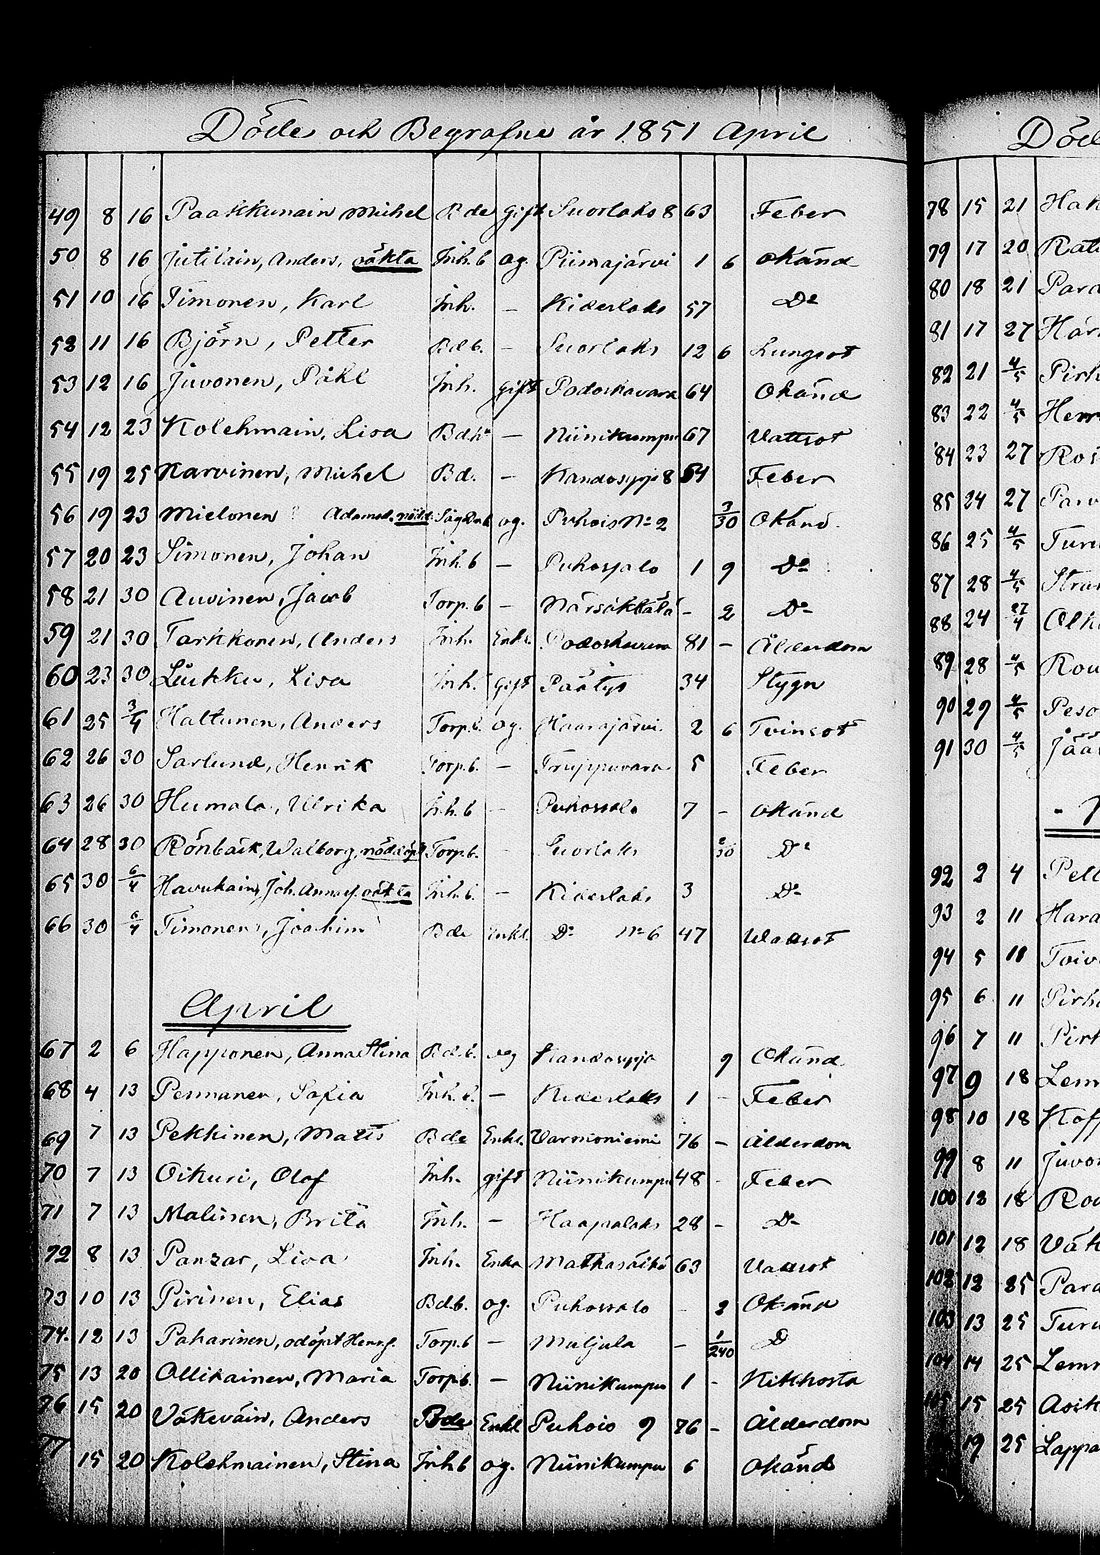 Döde och Begrafne år 1851 April
49 8 16 Paakkunain Michel Bde gift Suorlaks 8 63 Feber
50 8 16 Jutilain, Anders, oäkta Inh. b og. Piimajärvi 1 6 okänd
51 10 16 Timonen, Karl Inh. — Kiderlaks 57 Do
52 11 16 Björn, Petter Bd b. — Suorlaks 12 6 Lungsot
53 12 16 Juvonen, Påhl Inh. gift Podoskavara 64 Okänd
54 12 23 Kolehmain, Lisa Bdhu — Niinikumpu 67 Vattsot
55 19 25 Karvinen, Michel Bd. — Kandosyrjä 8 54 Feber
56 19 23 Mielonen Adamsd. nödd. og. Puhois No 2 3/30 Okänd.
57 20 23 Simonen, Johan Inh. b — Puhossalo 1 9 Do
58 21 30 Auvinen, Jacob Torp. b — Närsäkkälä - 2 Do
59 21 30 Tarkkonen, Anders Inh. Enkl. 81 — Ålderdom
60 23 30 Liukku, Lisa Inh. gift Päätys 34 Stygn
61 25 3/4 Hattunen, Anders Torp. b. og. Haarajärvi 2 6 Tvinsot
62 26 30 Sarlund, Henrik Torp. b. — Truppuvara 5 Feber
63 26 30 Humala, Ulrika Inh. b — Puhossalo 7 - okänd
64 28 30 Rönbäck, Walborg, nöddöpt Torp. b. — Suorlaks /30 Do
65 30 6/4 Havukain, Joh. Annasf. oäkta Inh. b. — Kiderlaks 3 Do
66 30 6/4 Timonen, Joachim Bde Enkl. Do No 6 47 Wattsot
April
67 2 6 Happonen, Anna Stina Bd. b. og Kandosyrja 9 Okänd
68 4 13 Pennanen, Sofia Inh. b. — Kiderlaks 1 - Feber
69 7 13 Pekkinen, Matts Bde Enkl. Varmoniemi 76 — Ålderdom
70 7 13 Oikuri, Olof Inh. gift Niinikumpu 48 - Feber
71 7 13 Malinen, Brita Inh. — Haapalaks 28 — Do
72 8 13 Panzar, Lisa Inh. Enka Matkaselkä 63 Vattsot
73 10 13 Pirinen, Elias Bd b. og. Puhossalo - 2 Okänd
74. 12 13 Pakarinen, odöpt Henr.f. Torp. b — Muljula — 1/240 D
75 13 20 Ollikainen, Maria Torp b. — Niinikumpu 1 - Kikhosta
76 15 20 Väkeväin, Anders Bde Enkl Puhois 9 76 — Ålderdom
77 15 20 Kolehmainen, Stina Inh b og. Niinikumpu 6 okänd
78 15 21
79 17 20
80 18 21
81 17 27
82 21 4/5
83 22 4/5
84 23 27
85 24 27
86 25 4/5
87 28 4/5
88 24 27/4
89 28 4/5
90 29 4/5
91 30 4/5
92 2 4
93 2 11
94 5 11
95 6 11
96 7 11
97 9 18
98 10 18
99 8 11
100 13 18
101 12 18
102 12 25
103 13 25
104 14 25
105 15 25
19 25